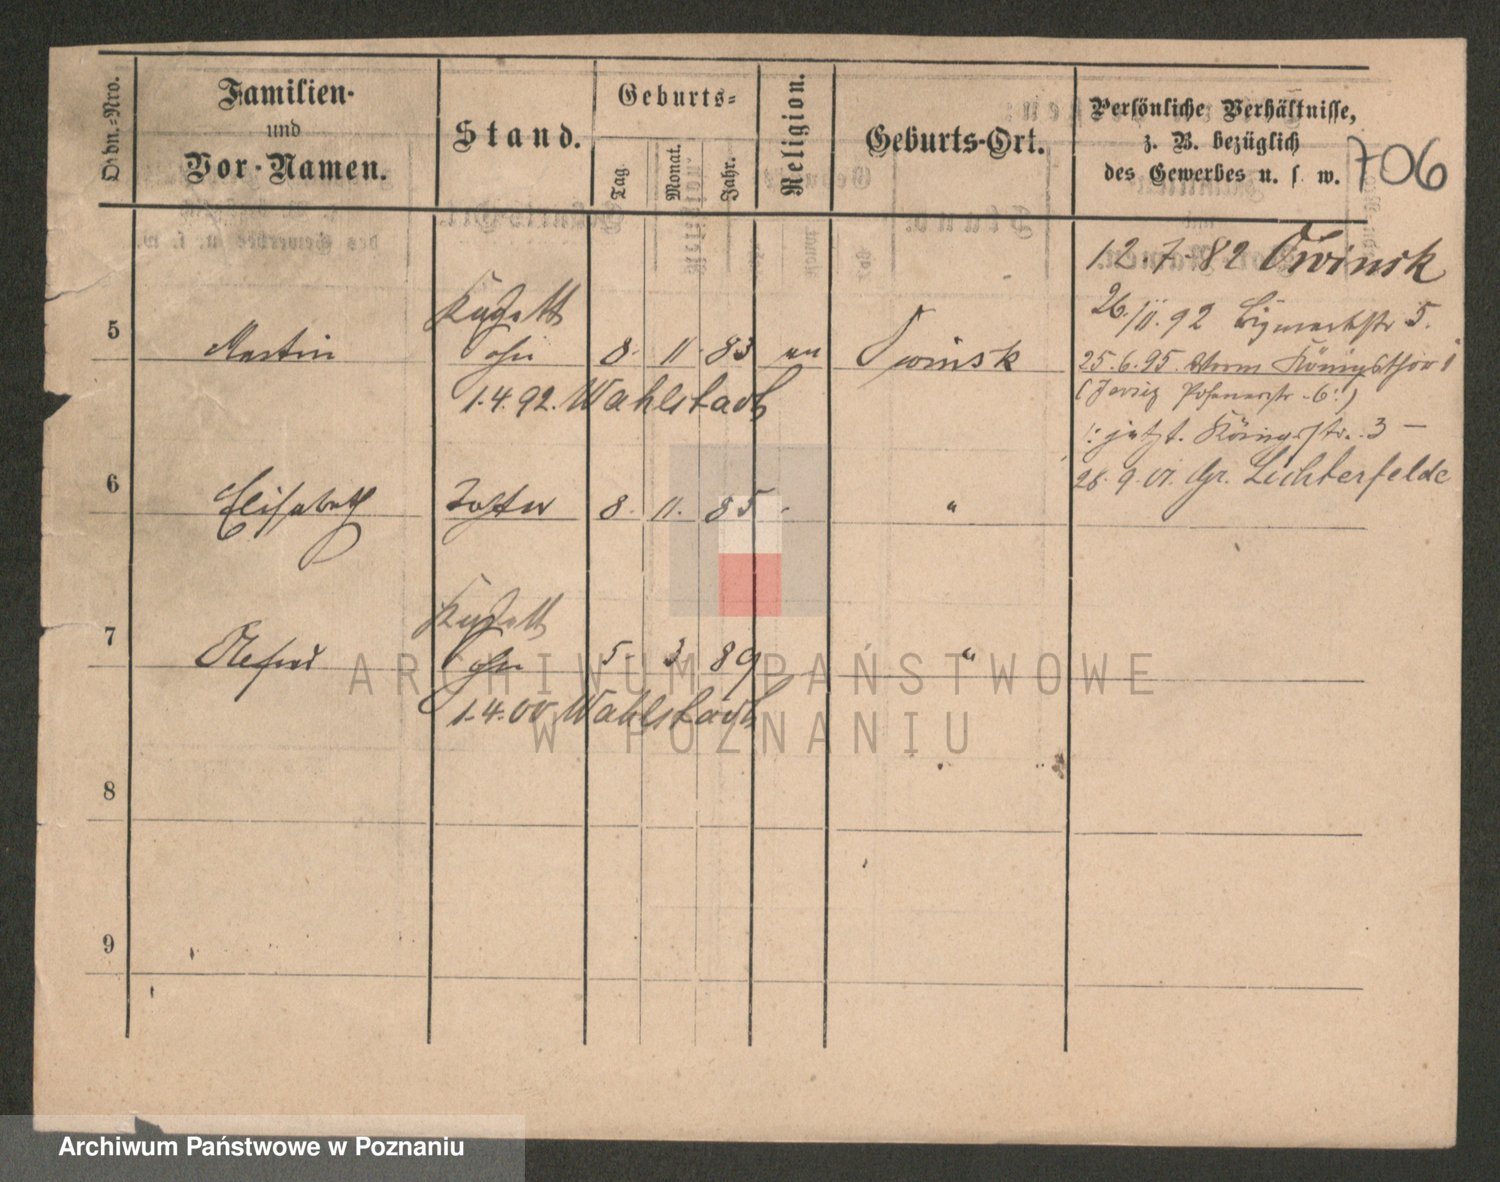 Ordn.-Nro.
Familien-
und
Vor-Namen.
Stand.
Geburts-
Tag.
Monat.
Jahr.
Religion.
Geburts-Ort.
Persönliche Verhältnisse,
z. B. bezüglich
des Gewerbes u. s. w.
706
12.7.82 Owinsk
26./11.92 Bismarckstr 5.
25.6.95. Königsthor 1
Posenerstr. 6:)
1: jetzt. Königsstr. 3 -
28.9.01. Gr. Lichterfelde
Kadett
5 Martin Sohn 8. 11. 83 Owinsk
1.4.92. Wahlstadt
6 Elisabeth Tochter 8. 11. 85 - "
Kadett
7 Alfred Sohn 5. 3. 89 "
1.4.00 Wahlstadt
8
9
ARCHIWUM PAŃSTWOWE
W POZNANIU
Archiwum Państwowe w Poznaniu